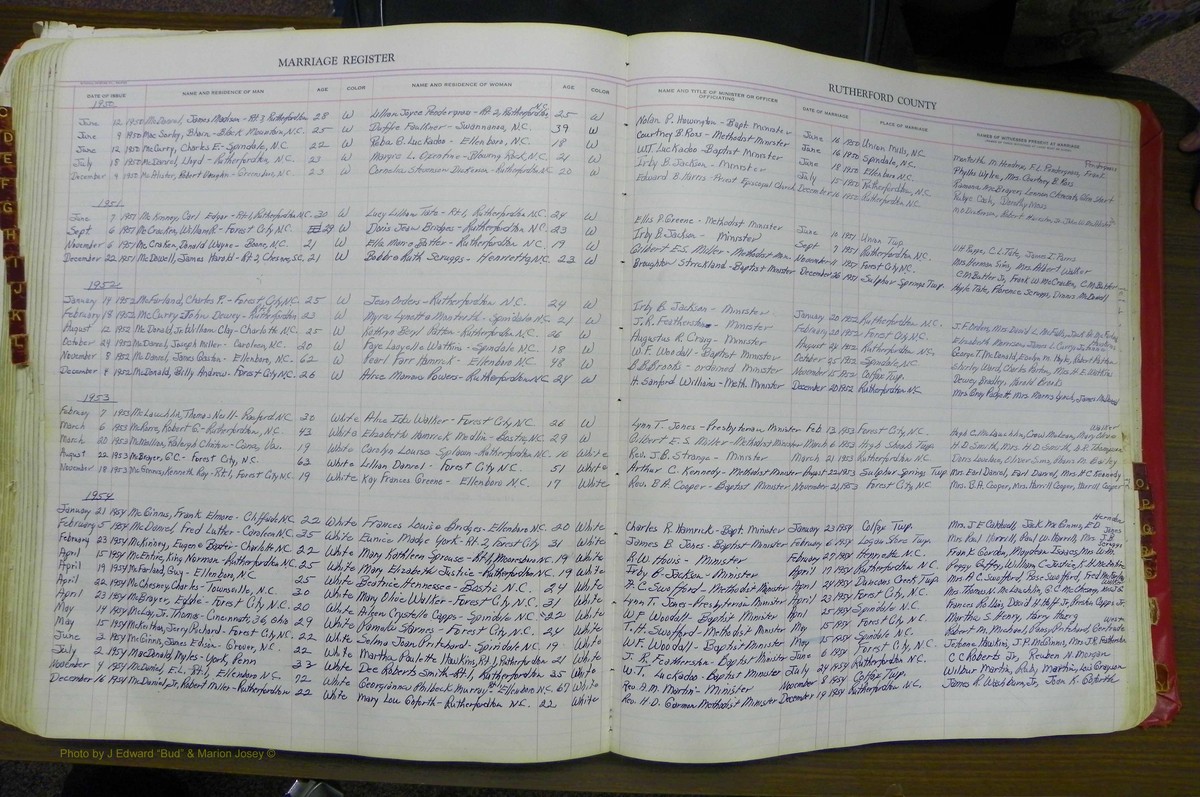 MARRIAGE REGISTER
DATE OF ISSUE NAME AND RESIDENCE OF MAN AGE COLOR NAME AND RESIDENCE OF WOMAN AGE COLOR
1950
June 12 1950 McDaniel, James Madison - Rt 3 Rutherfordton 28 W Lillian Joyce Pendergrass - Rt 2, Rutherfordton N.C. 25 W
June 9 1950 Mac Sorley, Blain - Black Mountain, N.C. 25 W Faulkner - Swannanoa, N.C. 39 W
June 12 1950 McCurry, Charles E - Spindale, N.C. 22 W Reba B. Luckadoo - Ellenboro, N.C. 18 W
July 15 1950 McDaniel, Lloyd - Rutherfordton, N.C. 23 W Margie L. - Blowing Rock, N.C. 21 W
December 9 1950 McAlister, Robert Vaughn - Greensboro, N.C. 23 W Cornelia Stevenson Dickerson - Rutherfordton N.C. 20 W
1951
June 7 1951 McKinney, Carl Edgar - Rt 1, Rutherfordton N.C. 20 W Lucy Lillian Tate - Rt 1, Rutherfordton N.C. 24 W
Sept 6 1951 McCracken, William R - Forest City N.C. 29 W Doris Jean Bridges - Rutherfordton N.C. 23 W
November 6 1951 McCraken, Donald Wayne - Boone, N.C. 21 W Ellie Marie Batter - Rutherfordton N.C. 19 W
December 22 1951 McDowell, James Harold - Rt 2, Chesnee, S.C. 21 W Bobbie Ruth Scruggs - Henrietta, N.C. 23 W
1952
January 19 1952 McFarland, Charles P. - Forest City N.C. 25 W Jean Orders - Rutherfordton N.C. 24 W
February 18 1952 McCurry John Dewey - Rutherfordton 23 W Myra Lynette Monteith - Spindale N.C. 21 W
August 12 1952 McDonald Jr, William Clay - Charlotte N.C. 25 W Kathryn Boyd Patton - Rutherfordton N.C. 26 W
October 24 1952 McDaniel, Joseph Miller - Caroleen, N.C. 20 W Faye Lavyelle Watkins - Spindale N.C. 18 W
November 8 1952 McDaniel, James Gaston - Ellenboro, N.C. 62 W Pearl Farr Hamrick - Ellenboro N.C. 48 W
December 4 1952 McDonald, Billy Andrew - Forest City N.C. 26 W Alice Mamie Powers - Rutherfordton N.C. 24 W
1953
February 7 1953 McLauchlin, Thomas Neill - Raeford N.C. 30 White Alice Ida Walker - Forest City 26 W
March 6 1953 McRorie, Robert G - Rutherfordton, N.C. 43 White Elizabeth Hamrick Medlin - Bostic, N.C. 29 W
March 20 1953 McMullan, Raleigh Clinton - Cana, Va. 19 White Carolyn Louise Splawn - Rutherfordton N.C. 16 White
August 22 1953 McBrayer, G.C - Forest City, N.C. 63 White Lillian Daniel - Forest City N.C. 51 White
November 18 1953 McGinnis, Kenneth Ray - Rt 1, Forest City N.C. 19 White Kay Frances Greene - Ellenboro N.C. 17 White
1954
January 21 1954 McGinnis, Frank Elmore - Cliffside N.C. 22 White Frances Louise Bridges - Ellenboro N.C. 20 White
February 5 1954 McDaniel, Fred Luther - Caroleen N.C. 35 White Eunice Madge York - Rt 2, Forest City 31 White
February 23 1954 McKinney, Eugene Baxter - Charlotte N.C. 22 White Mary Kathleen Sprouse - Rt 1, Mooresboro N.C. 19 White
April 15 1954 McEntire, King Norman - Rutherfordton N.C. 25 White Mary Elizabeth Justice - Rutherfordton N.C. 19 White
April 19 1954 McFarland, Guy - Ellenboro, N.C. 25 White Beatrice Hennessee - Bostic N.C. 24 White
April 22 1954 McChesney, Charles - Townsville, N.C. 30 White Mary Olive Walker - Forest City N.C. 31 White
April 23 1954 McBrayer, Eddie - Forest City N.C. 20 White Arleen Crystelle Capps - Spindale N.C. 22 White
May 14 1954 McLay, Jr. Thomas - Cincinnati, 36, Ohio 29 White Pamela Starnes - Forest City N.C. 24 White
May 15 1954 McKeithan, Jerry Richard - Forest City N.C. 22 White Selma Joan Pritchard - Spindale N.C. 19 White
June 2 1954 McGinnis, James Edison - Grover, N.C. 22 White Martha Paulette Hawkins, Rt 1, Rutherfordton 21 White
July 2 1954 MacDonald Myles - York, Penn 33 White Dee Roberts Smith - Rt 1, Rutherfordton 35 White
November 4 1954 McDaniel, E.L. Rt 1, Ellenboro N.C. 72 White Georgianna Philbeck Murray - Ellenboro N.C. 67 White
December 16 1954 McDaniel Jr, Robert Miller - Rutherfordton 22 White Mary Lou Goforth - Rutherfordton N.C. 22 White
RUTHERFORD COUNTY
NAME AND TITLE OF MINISTER OR OFFICER OFFICIATING DATE OF MARRIAGE PLACE OF MARRIAGE NAMES OF WITNESSES PRESENT AT MARRIAGE
Nolan P. Howington - Bapt Minister June 16 1950 Union Mills, N.C.
Courtney B. Ross - Methodist Minister June 16 1950 Spindale, N.C. Phyllis Wylie, Mrs. Courtney B. Ross
W.T. Luckadoo - Baptist Minister June 18 1950 Ellenboro N.C.
Irby B. Jackson - Minister July 15 1950 Rutherfordton, N.C. Dorothy Moss
Edward B. Harris - Priest Episcopal Church December 16 1950 Rutherfordton, N.C.
Ellis P. Greene - Methodist Minister June 10 1951 Union Twp.
Irby B. Jackson - Minister Sept 7 1951 Rutherfordton, N.C. C.L. Tate, James I. Purris
Gilbert E.S. Miller - Methodist Min November 11 1951 Forest City, N.C. Mrs. Albert Walker
Broughton Strickland - Baptist Minister December 26 1951 Sulphur Springs Twp. C.M. Batter Jr, Frank W. McCracken, C.M. Batter
Hoyle Tate, Florence Scruggs, Dennis McDowell
Irby B. Jackson - Minister January 20 1952 Rutherfordton, N.C.
J.R. Featherston - Minister February 20 1952 Forest City, N.C.
Augustus R. Craig - Minister August 24 1952 Rutherfordton N.C.
W.F. Woodall - Baptist Minister October 25 1952 Spindale N.C. George T. McDonald, Evelyn M. Hoyle, Robert Patton
B.B. Brooks - ordained Minister November 15 1952 Colfax Twp. Shirley Ward, Charles Patton, Mrs. H.E. Watkins
H. Sanford Williams - Meth. Minister December 20 1952 Rutherfordton N.C. Dewey Bradley, Harold Brooks
Mrs. Gray Padgett, Mrs. Morris Lynch, James McDaniel
Lynn T. Jones - Presbyterian Minister Feb. 13 1953 Forest City, N.C. Walker
Gilbert E.S. Miller - Methodist Minister March 6 1953 High Shoals Twp.
Rev. J.B. Strange - Minister March 21 1953 Rutherfordton N.C.
Arthur C. Kennedy - Methodist Minister August 22 1953 Sulphur Springs Twp. Mrs. Earl Daniel, Earl Daniel, Mrs. H.C. Kennedy
Rev. B.A. Cooper - Baptist Minister November 21, 1953 Forest City N.C. Mrs. B.A. Cooper, Mrs. Horrell Cooper, Merrill Cooper
Charles R. Hamrick - Bapt. Minister January 23 1954 Colfax Twp. Mrs. J.E. Caldwell, Jack McGinnis, E.D.
James B. Jones - Baptist Minister February 6 1954 Logan Store Twp. Mrs. Paul Horrill, Paul W. Morrill, Mrs. J.B. Jones
R.W. Hovis - Minister February 27 1954 Henrietta N.C. Frank Gordon, Haydean Isaacs, Mrs. W.M. Scruggs
Irby B. Jackson - Minister April 17 1954 Rutherfordton N.C. Peggy Gaffey, William C. Justice, K.H. McEntire
A.C. Swofford - Methodist Minister April 24 1954 Duncans Creek Twp. Mrs. A.C. Swofford, Rose Swofford, Fred McFarland
Lynn T. Jones - Presbyterian Minister April 23 1954 Forest City N.C. Mrs. Thomas N. McLauchlin, G.C. McChesney
W.F. Woodall - Baptist Minister April 25 1954 Spindale N.C. Frances Rollins, David H. Huff Jr, Preston Capps Jr.
T.H. Swofford - Methodist Minister May 15 1954 Forest City N.C. Martha S. Henry, Harry
W.F. Woodall - Baptist Minister May 15 1954 Spindale N.C. Robert M. Michael, Gertrude
J.R. Featherston - Baptist Minister June 6 1954 Forest City N.C. Jehenne Hawkins, J.P. McGinnis, Mrs. J.R. Featherston
W.T. Luckadoo - Baptist Minister July 24 1954 Rutherfordton N.C. C.C. Roberts Jr, Reuben N. Morgan
Rev. A.M. Martin - Minister November 8 1954 Colfax Twp. Wilbur Martin, Ruby Martin, Lois Grayson
Rev. H.D. Garmon Methodist Minister December 19 1954 Rutherfordton N.C. James R. Washburn, Jr, Joan K. Goforth
Photo by J Edward "Bud" & Marion Josey ©